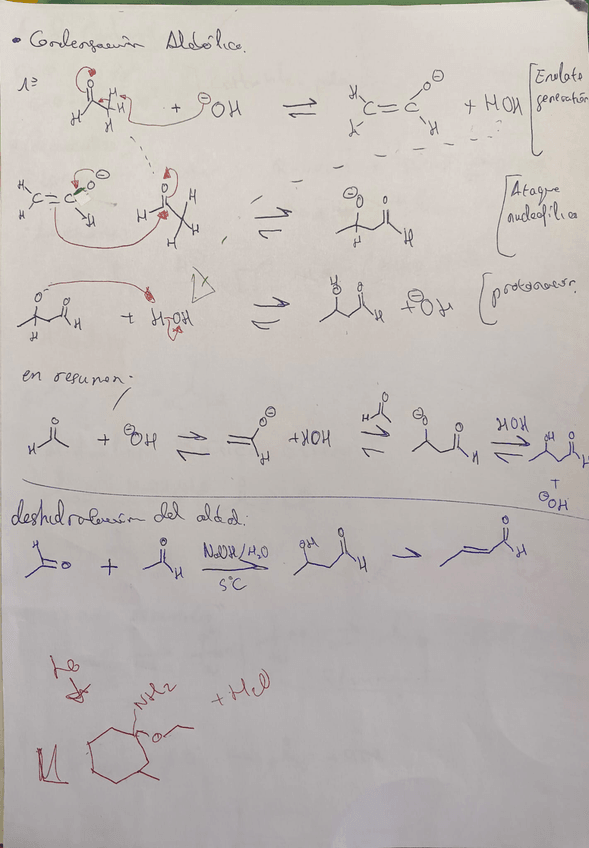 • Condensación Aldólica.
1º
O
H
H
H
H
+ ⊖OH ⇌
H
H
C=C
O⊖
H
+ HOH
[Enolato
generación
H
H
C=C
O⊖
H
O
H
H
H
H
⇌
⊖O
H
O
H
[Ataque
nucleofílico
O⁻
H
O
H
+ H-OH
⇌
H
O
O
H
+⊖OH
en resumen:
O
H
+ ⊖OH ⇌
O⊖
H
+HOH
O
H
⇌
⊖O
O
H
HOH
⇌
OH
O
H
+
⊖OH
deshidratación del aldol:
H
O
+
O
H
NaOH/H₂O
5°C
OH
O
H
→
O
H
NH2
+ HCl
O